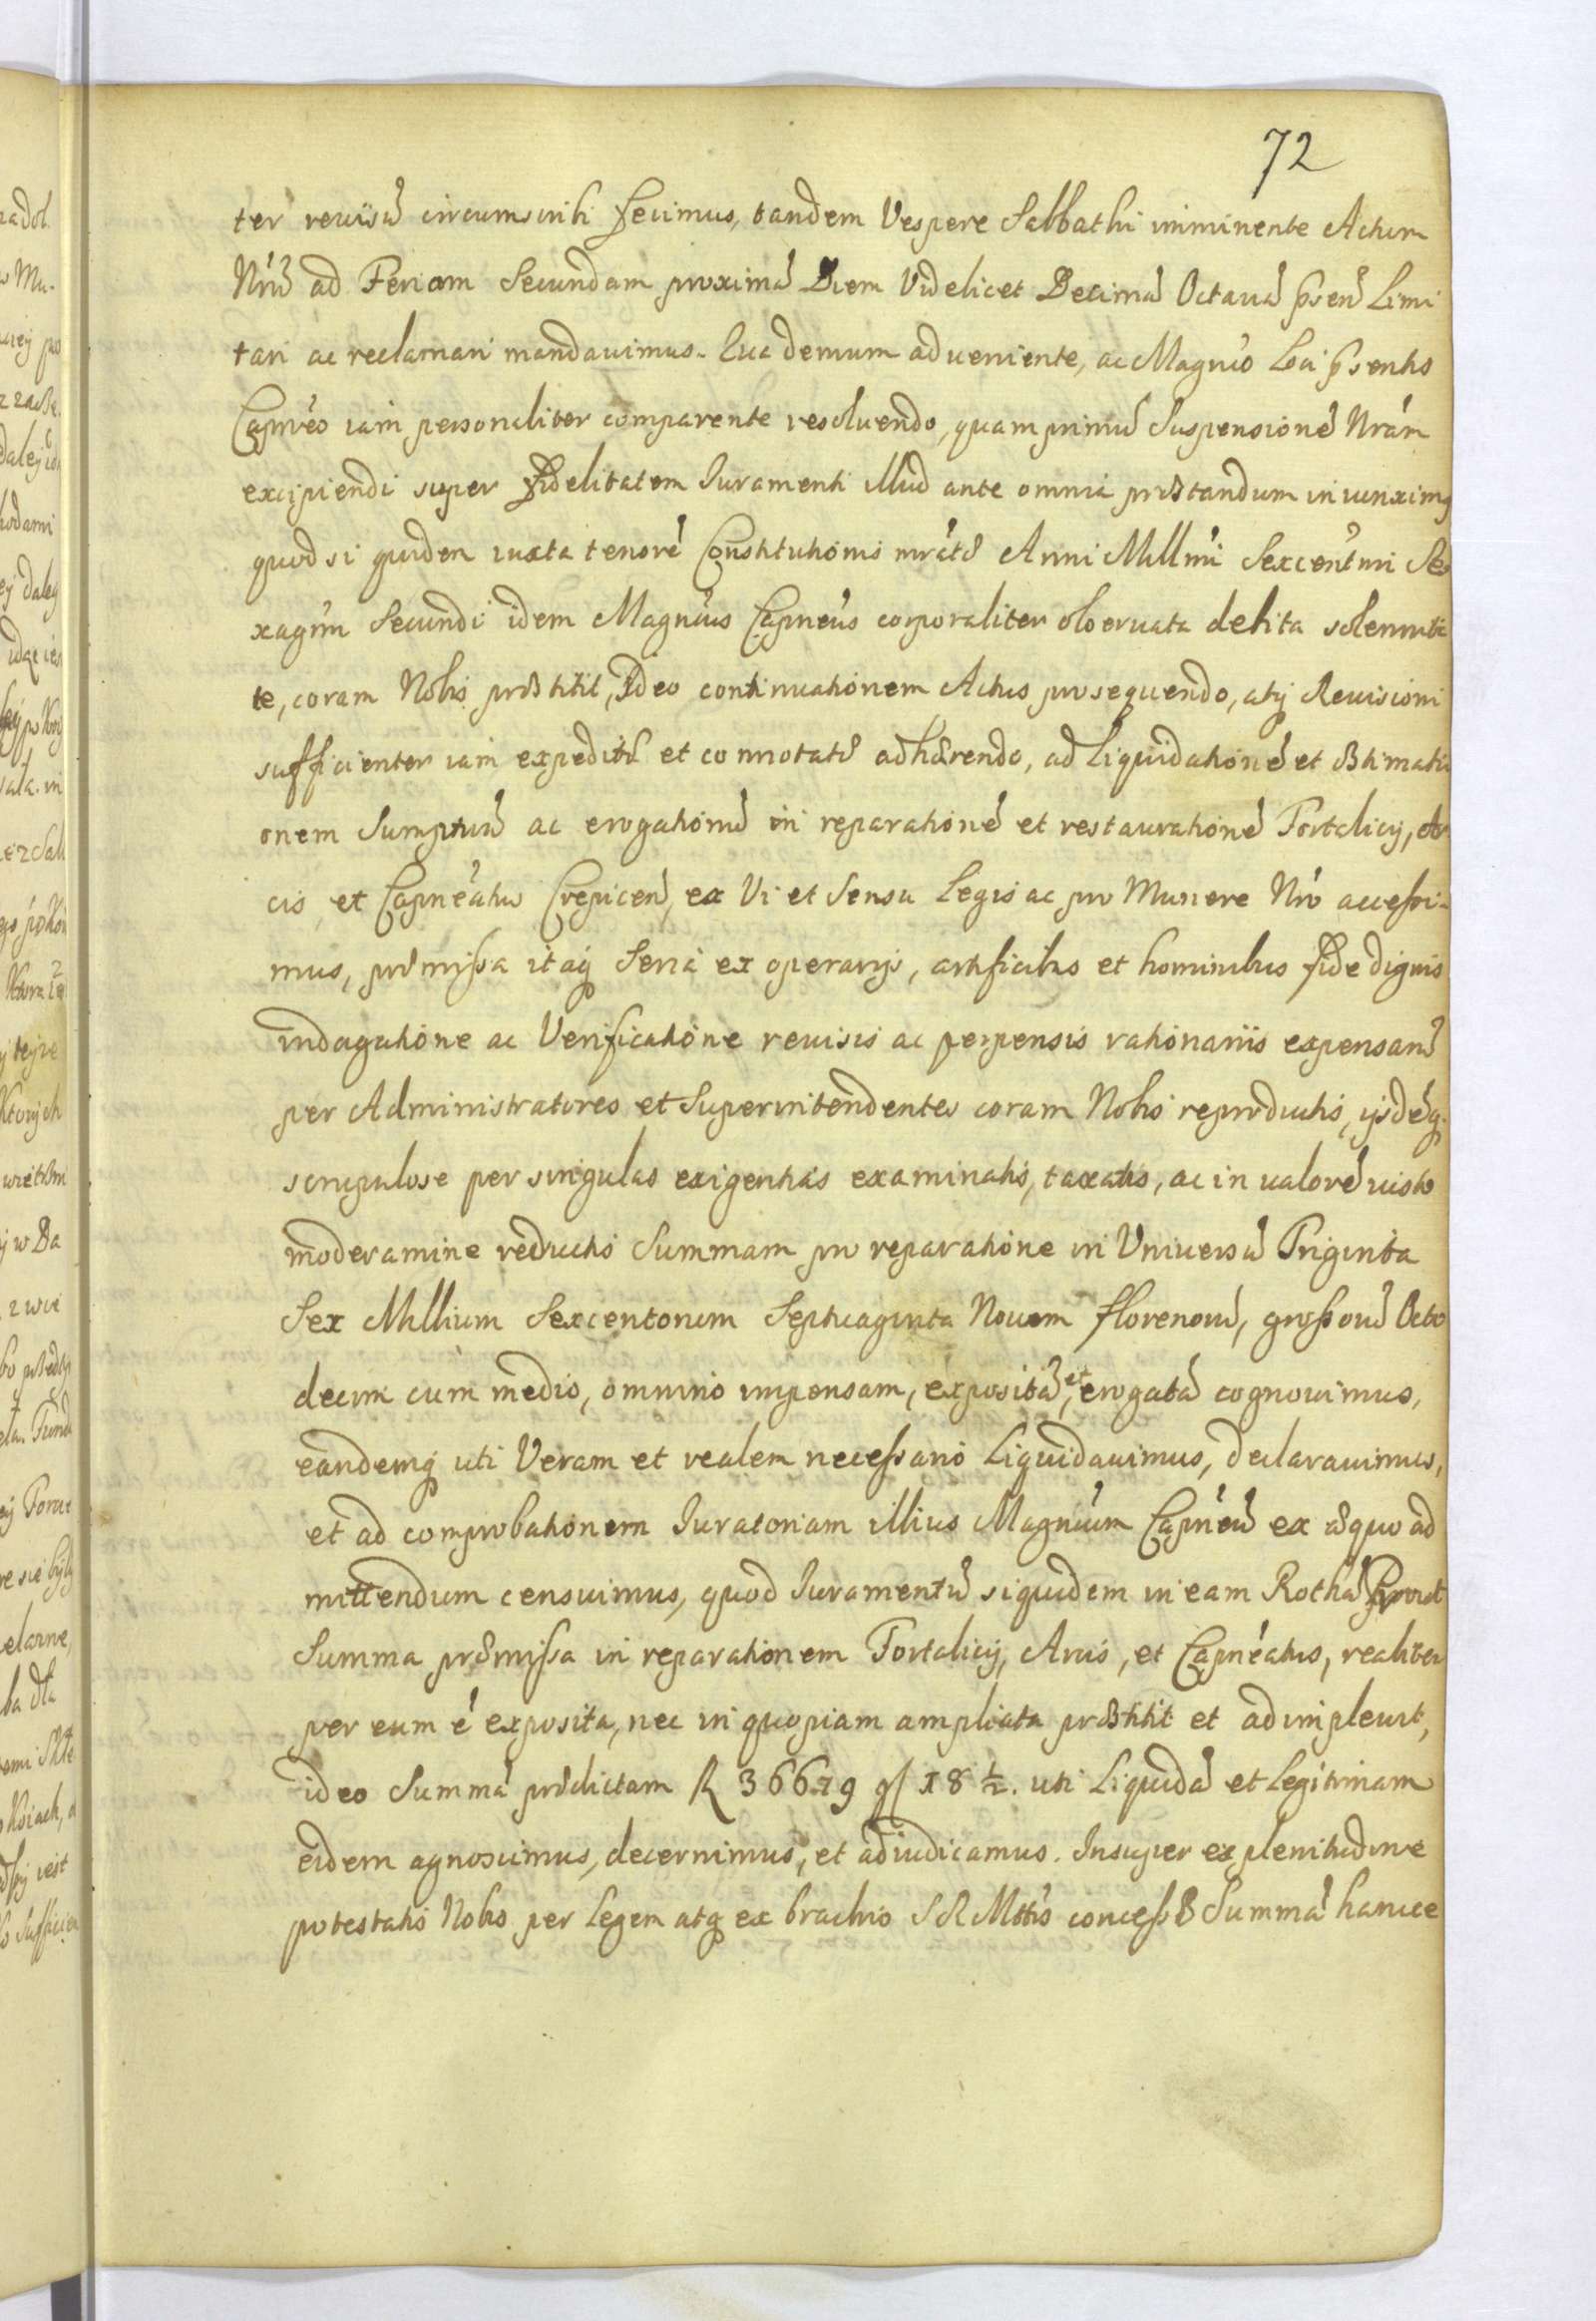 72
ter reuisũ circumscribi fecimus, tandem Vespere Sabbathi imminente Actum
Nrũ ad Feriam Secundam proximã Diem Videlicet Decimã Octauã p̃sen̄ Limi
tari ac reclamari mandauimus. Qua demum adueniente, ac Magn̄co Loci p̃sentis
Capn̄eo iam personaliter comparente resoluendo, quam primũ Suspensionẽ Nrãm
excipiendi super fidelitatem Iuramenti illud ante omnia præstandum iniunximq
quod si quidem iuxta tenorẽ Constitutionis mr̃atæ Anni Mill̃mi Sexcent̃mi Se
xagm̃ Secundi idem Magn̄cus Capn̄eus corporaliter obseruata debita solennita
te, coram Nobis præstitit, Ideo continuationem Actus prosequendo, atq Reuisioni
sufficienter iam expeditæ et connotatæ adhærendo, ad Liquidationẽ et æstimati
onem Sumptuũ ac erogationũ in reparationẽ et restaurationẽ Fortalicij, Ar
cis et Capn̄eatus Crepicen̄, ex Vi et Sensu Legis ac pro Munere Nrõ accessi-
mus, præmissa itaq Seria ex operarijs, artificibus et hominibus fide dignis
indagatione ac Verificatione reuisis ac perpensis rationariis expensarũ
per Administratores et Superintendentes coram Nobis reproductis, ijsdẽq.
scrupulose per singulas exigentias examinatis, taxatis, ac in ualorẽ iusto
moderamine reductis Summam pro reparatione in Uniuersũ Triginta
Sex Millium Sexcentorum Septuaginta Nouem florenorũ, grossorũ Octo
decim cum medio, omnino impensam, expositã, et erogatã cognouimus,
eandemq uti Veram et realem necessario Liquidauimus, declarauimus,
et ad comprobationem Iuratoriam illius Magn̄cum Capn̄eũ ex æquo ad
mittendum censuimus, quod Iuramentũ siquidem in eam Rothã Prout
Summa præmissa in reparationem Fortalicij, Arcis, et Capn̄eatus, realiter
per eum ẽ exposita, nec in quopiam ampliata præstitit et adimpleuit,
ideo Summã prædictam R 36679 gſ 18 ½. uti Liquidã et Legitimam
eidem agnoscimus, decernimus, et adiudicamus. Insuper ex plenitudine
potestatis Nobis per Legem atq ex brachio S R Mttis concessæ Summã hancce